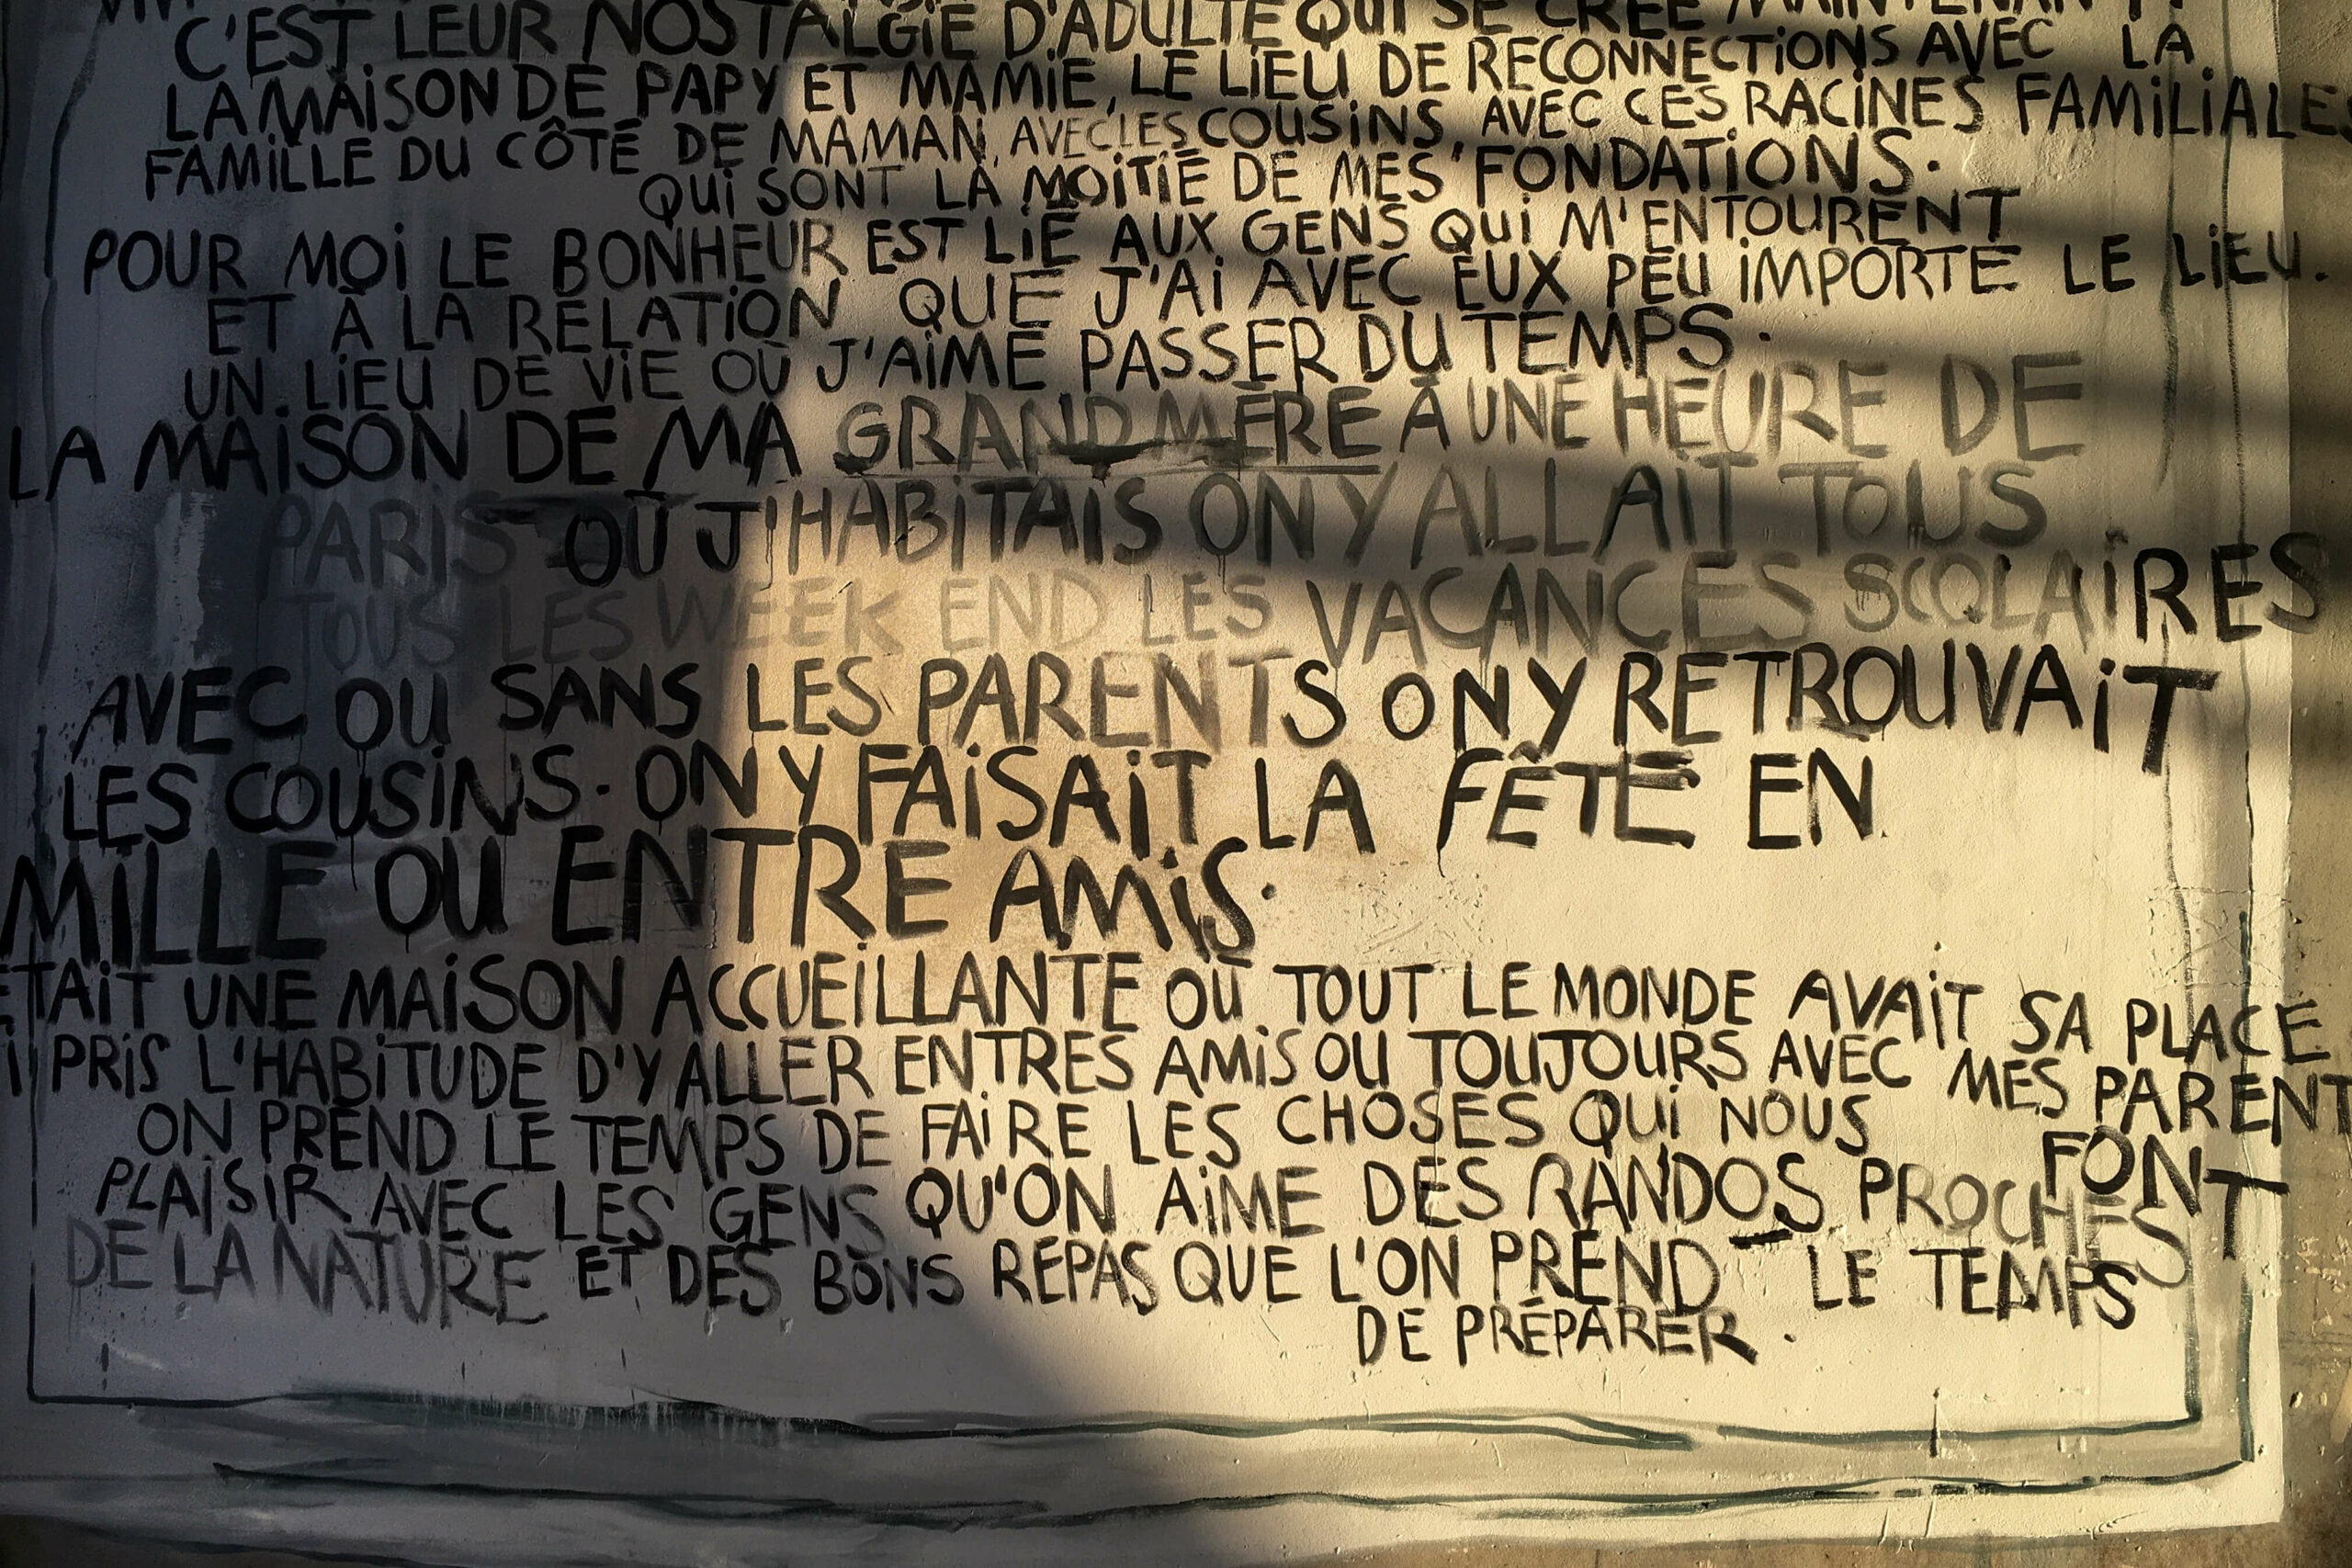 C'EST LEUR NOSTALGIE D'ADULTE QUI SE CRÉE MAINTENANT
LA MAISON DE PAPY ET MAMIE, LE LIEU DE RECONNECTIONS AVEC LA
FAMILLE DU CÔTÉ DE MAMAN, AVEC LES COUSINS, AVEC CES RACINES FAMILIALES
QUI SONT LA MOITIÉ DE MES FONDATIONS.
POUR MOI LE BONHEUR EST LIÉ AUX GENS QUI M'ENTOURENT
ET À LA RELATION QUE J'AI AVEC EUX PEU IMPORTE LE LIEU.
UN LIEU DE VIE OÙ J'AIME PASSER DU TEMPS.
LA MAISON DE MA GRAND MÈRE À UNE HEURE DE
PARIS OÙ J'HABITAIS ON Y ALLAIT TOUS
TOUS LES WEEK END LES VACANCES SCOLAIRES
AVEC OU SANS LES PARENTS ON Y RETROUVAIT
LES COUSINS. ON Y FAISAIT LA FÊTE EN
MILLE OU ENTRE AMIS.
ÉTAIT UNE MAISON ACCUEILLANTE OÙ TOUT LE MONDE AVAIT SA PLACE
I PRIS L'HABITUDE D'Y ALLER ENTRES AMIS OU TOUJOURS AVEC MES PARENT
ON PREND LE TEMPS DE FAIRE LES CHOSES QUI NOUS FONT
PLAISIR AVEC LES GENS QU'ON AIME DES RANDOS PROCHES
DE LA NATURE ET DES BONS REPAS QUE L'ON PREND LE TEMPS
DE PRÉPARER.